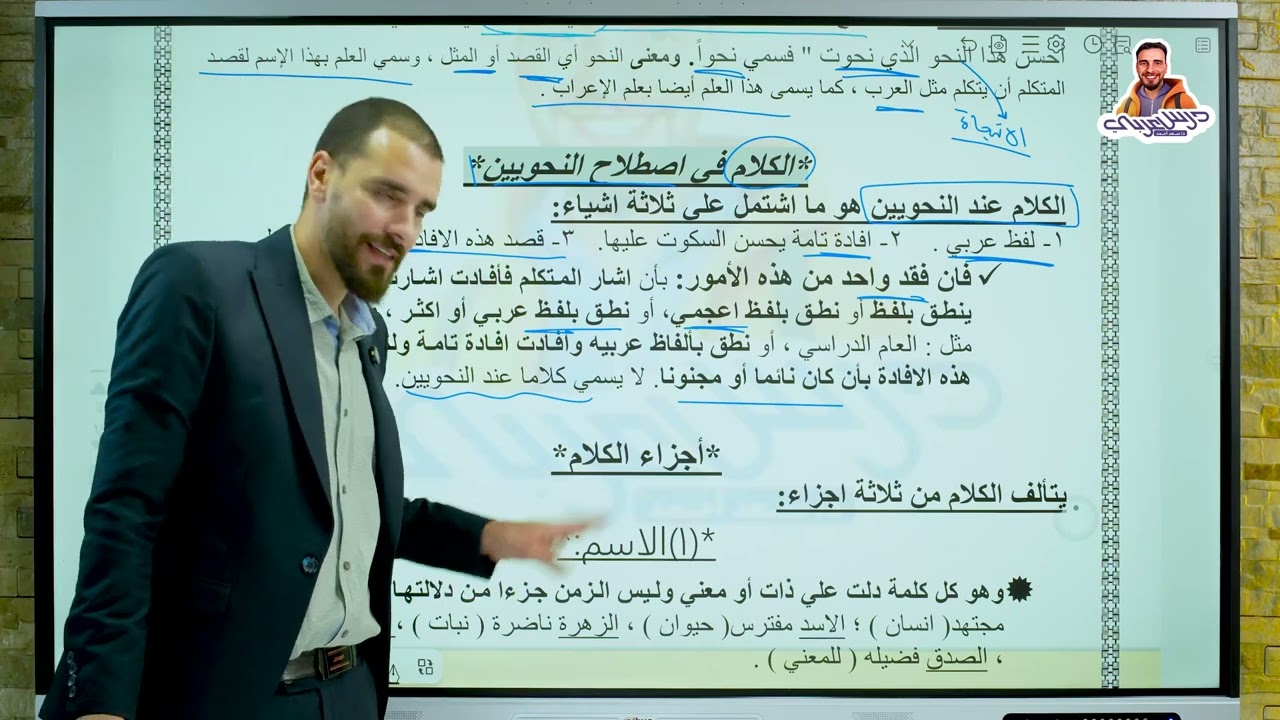 احسن هذا النحو الذي نحوت " فسمي نحواً. ومعنى النحو أي القصد أو المثل ، وسمي العلم بهذا الإسم لقصد
المتكلم أن يتكلم مثل العرب ، كما يسمى هذا العلم أيضا بعلم الإعراب .
الاتجاة
درس عربي
*الكلام في اصطلاح النحويين*
الكلام عند النحويين هو ما اشتمل على ثلاثة اشياء:
١- لفظ عربي . ٢- افادة تامة يحسن السكوت عليها. ٣- قصد هذه الافاد
✓ فان فقد واحد من هذه الأمور: بأن اشار المتكلم فأفادت اشارت
ينطق بلفظ أو نطق بلفظ اعجمي، أو نطق بلفظ عربي أو اكثر ،
مثل : العام الدراسي ، أو نطق بألفاظ عربيه وأفادت افادة تامة ول
هذه الافادة بأن كان نائما أو مجنونا. لا يسمي كلاما عند النحويين.
*أجزاء الكلام*
يتألف الكلام من ثلاثة اجزاء:
*(١)الاسم:
وهو كل كلمة دلت علي ذات أو معني وليس الزمن جزءا من دلالتها
مجتهد( انسان ) ؛ الاسد مفترس( حيوان ) ، الزهرة ناضرة ( نبات ) ،
، الصدق فضيله ( للمعني ) .